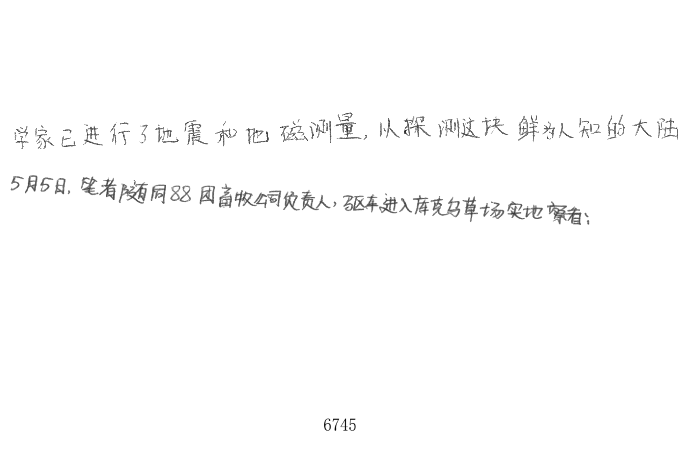 学家已进行了地震和地磁测量,以探测这块鲜为人知的大陆
5月5日,笔者随同88团畜牧公司负责人,驱车进入库克乌草场实地察看;
6745